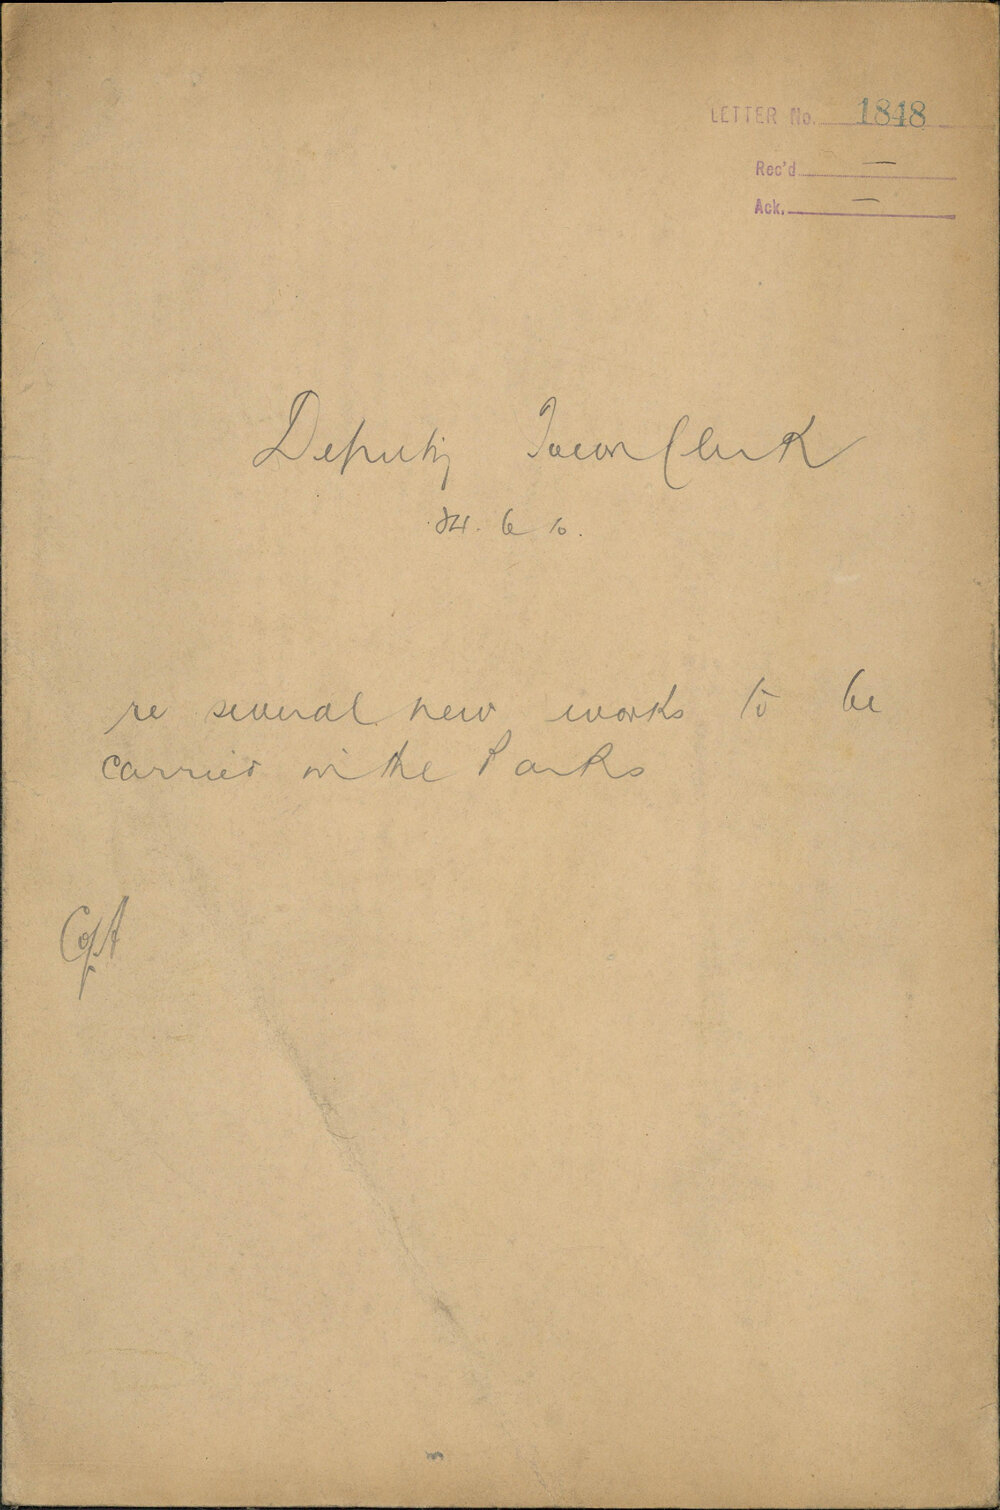 LETTER No. 1848
Rec'd —
Ack. —
Deputy Town Clerk
24. 6 10.
re several new works to be
carried in the Parks